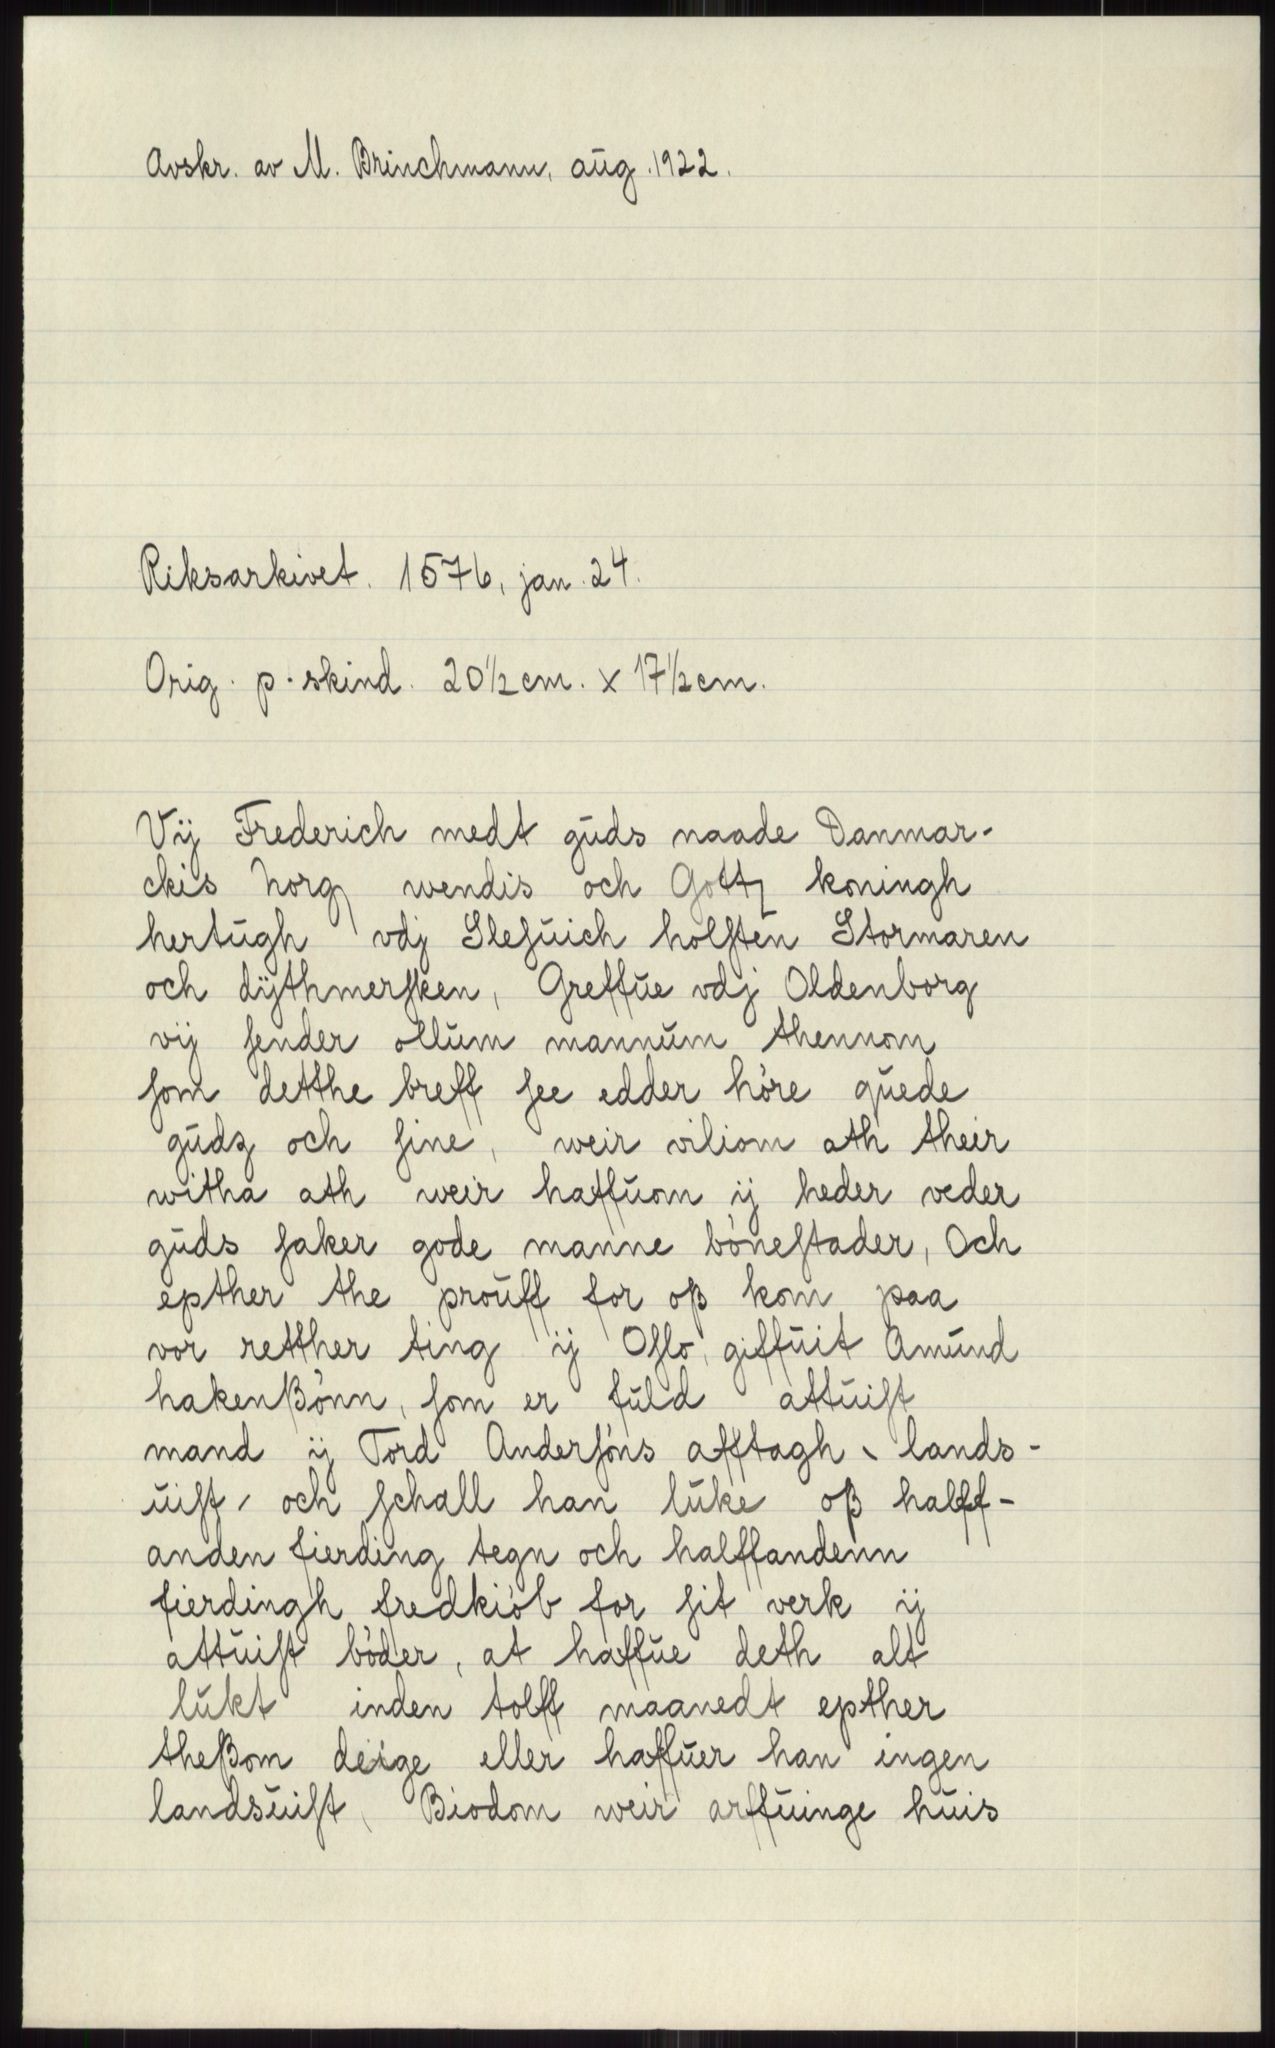 Avskr. av M. Brinchmann, aug. 1922.
Riksarkivet. 1576, jan. 24.
Orig. p. skind. 20½ cm. x 17½ cm.
Vij Frederich medt guds naade Danmar-
ckis Norg wendis och Gott koningh
hertugh vdj Slesuich holsten Stormaren
och dijthmersken, Greffue vdj Oldenborg
vij sender ollum mannum thennom
som detthe breff see edder höre quede
gudz och sine, weir viliom ath their
witha ath weir haffuom ij heder veder
guds saker gode manne bönestader, Och
epther the prouff for oß kom paa
vor retther ting ij Oslo, giffuit Amund
hakenßönn, som er fuld attuist
mand ij Tord Andersöns afftagh, lands-
uist, och schall han luke oß halff-
anden fierding tegn och halffandenn
fierdingh fredkiöb for sit verk ij
attuist böder, at haffue deth alt
lukt inden tolff maanedt epther
theßom deige eller haffuer han ingen
landsuist, Biodom weir arffuinge huis